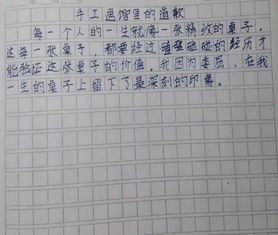 手工画馆里的道歉
每一个人的一生就像一张精致的桌子,
这每一张桌子,都要经过磕磕碰碰的经历才
能验证这张桌子的价值。我因为委屈,在我
一生的桌子上留下了最深刻的印象。